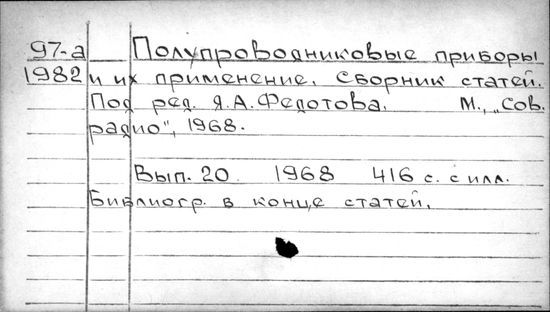 97-а Полупроводниковые приборы
1982 и их применение. Сборник статей.
Под ред. Я.А.Федотова. М., „Сов.
радио", 1968.
Вып. 20 1968 416 с. с илл.
Библиогр. в конце статей.